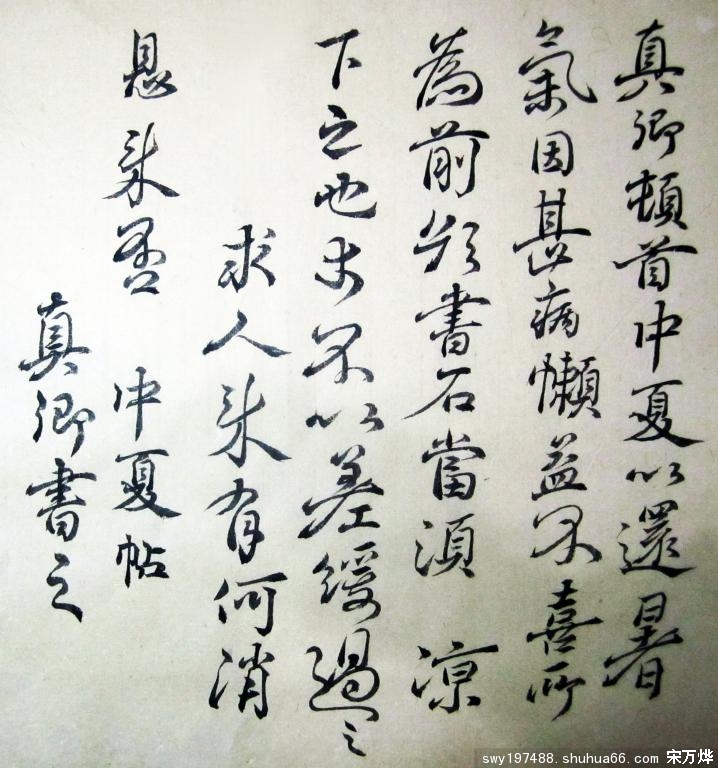 真卿頓首中夏以還暑
氣因甚病懶益不喜所
為前欲書石當須 涼
下之也不以差緩過之
求人来有何消
息来否 中夏帖
真卿書之
swy197488.shuhua66.com 宋万烨